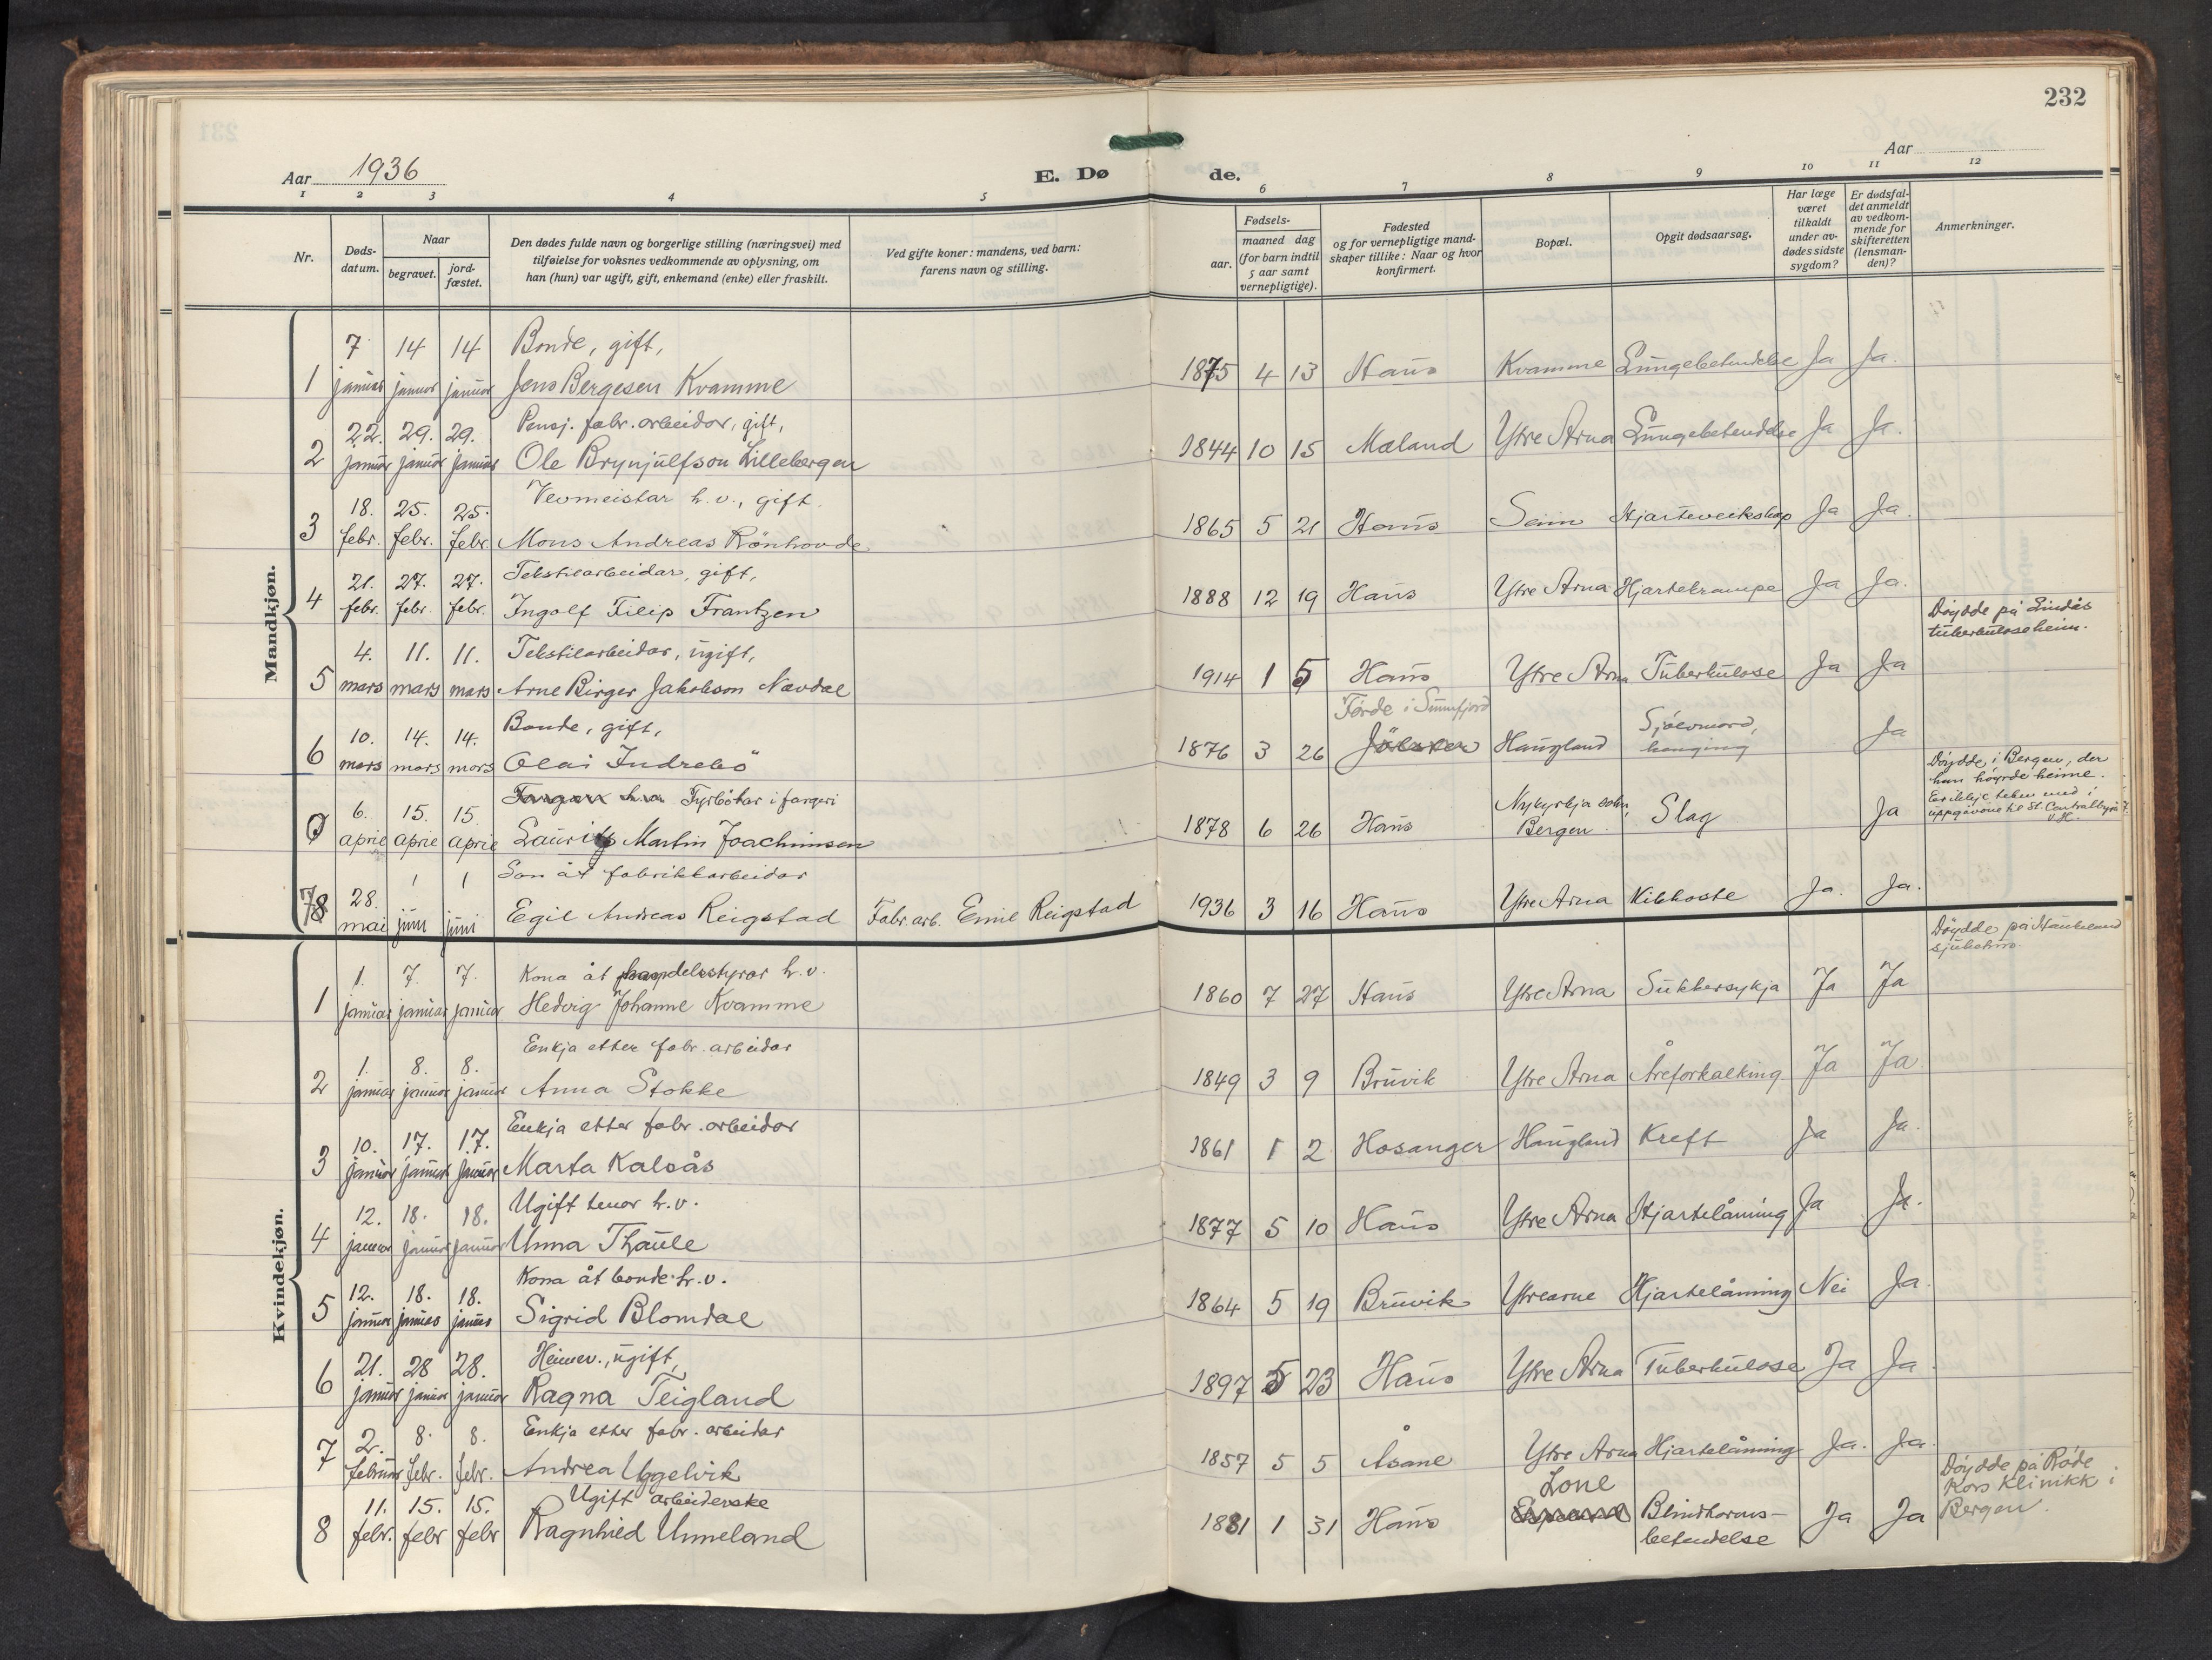 232
Aar 1936
E. Døde.
Aar
1 2 3 4 5 6 7 8 9 10 11 12
Nr.
Dødsdatum.
Naar
begravet.
jordfæstet.
Den dødes fulde navn og borgerlige stilling (næringsvei) med
tilføielse for voksnes vedkommende av oplysning, om
han (hun) var ugift, gift, enkemand (enke) eller fraskilt.
Ved gifte koner: mandens, ved barn:
farens navn og stilling.
Fødsels-
aar.
maaned dag
(for barn indtil
5 aar samt
vernepligtige).
Fødested
og for vernepligtige mand-
skaper tillike: Naar og hvor
konfirmert.
Bopæl.
Opgit dødsaarsag.
Har læge
været
tilkaldt
under av-
dødes sidste
sygdom?
Er dødsfal-
det anmeldt
av vedkom-
mende for
skifteretten
(lensman-
den)?
Anmerkninger.
Mandkjøn.
7 14 14 Bonde, gift,
1 januar januar januar Jens Bergesen Kvamme 1875 4 13 Haus Kvamme Lungebetendelse Ja Ja.
22. 29. 29. Pensj. fabr. arbeidar, gift,
2 januar januar januar Ole Brynjulfson Lillebergen 1844 10 15 Mæland Ytre Arna Lungebetendelse Ja Ja.
18. 25. 25. Vevmeistar h.v., gift.
3 febr. febr. febr. Mons Andreas Rönhovde 1865 5 21 Haus Seim Hjarteveikskap Ja Ja.
21. 27. 27. Tekstilarbeidar, gift,
4 febr. febr. febr. Ingolf Filip Frantzen 1888 12 19 Haus Ytre Arna Hjartekrampe Ja Ja.
4. 11. 11. Tekstilarbeidar, ugift,
5 mars mars mars Arne Birger Jakobson Navdal 1914 1 5 Haus Ytre Arna Tuberkulose Ja Ja Döydde på Lindås tuberkuloseheim.
10. 14. 14. Bonde, gift,
6 mars mars mars Olai Indrebö 1876 3 26 Förde i Sunnfjord Jölster Haugland Sjölvmord, henging Ja
6. 15. 15. Fargar h.v. Fyrbötar i fargeri
0 april april april Lauritz Martin Joachimsen 1878 6 26 Haus Nykyrkja sokn, Bergen Slag Ja Döydde i Bergen, der
han höyrde heime.
Er ikkje teken med i
uppgåvone til St. Centralbyrå
28. 1 1 Son åt fabrikkarbeidar
78 mai juni juni Egil Andreas Reigstad Fabr. arb. Emil Reigstad 1936 3 16 Haus Ytre Arna Kikhoste Ja. Ja.
Kvindekjøn.
1. 7. 7. Kona åt handelsstyrar h.v.
1 januar januar januar Hedvig Johanne Kvamme 1860 7 27 Haus Ytre Arna Sukkersykja Ja Ja Döydde på Haukeland
sjukehus.
1. 8. 8. Enkja etter fabr. arbeidar
2 januar januar januar Anna Stokke 1849 3 9 Bruvik Ytre Arna Åreforkalking Ja Ja
10. 17. 17. Enkja etter fabr. arbeidar
3 januar januar januar Marta Kalsås 1861 1 2 Hosanger Haugland Kreft Ja Ja.
12. 18. 18. Ugift tenar h.v.
4 januar januar januar Unna Thaule 1877 5 10 Haus Ytre Arna Hjartelåming Ja Ja.
12. 18. 18. Kona åt bonde h.v.
5 januar januar januar Sigrid Blomdal 1864 5 19 Bruvik Ytrearne Hjartelåming Nei Ja.
21. 28 28. Heimev., ugift,
6 januar januar januar Ragna Teigland 1897 5 23 Haus Ytre Arna Tuberkulose Ja Ja.
2. 8. 8. Enkja etter fabr. arbeidar
7 februar febr. febr. Andrea Uggelvik 1857 5 5 Åsane Ytre Arna Hjartelåming Ja. Ja.
11. 15. 15. Ugift arbeiderske
8 febr. febr febr Ragnhild Unneland 1881 1 31 Haus Lone Blindtarms-
betendelse Ja Ja Döydde på Röde
Kors Klinikk i
Bergen.